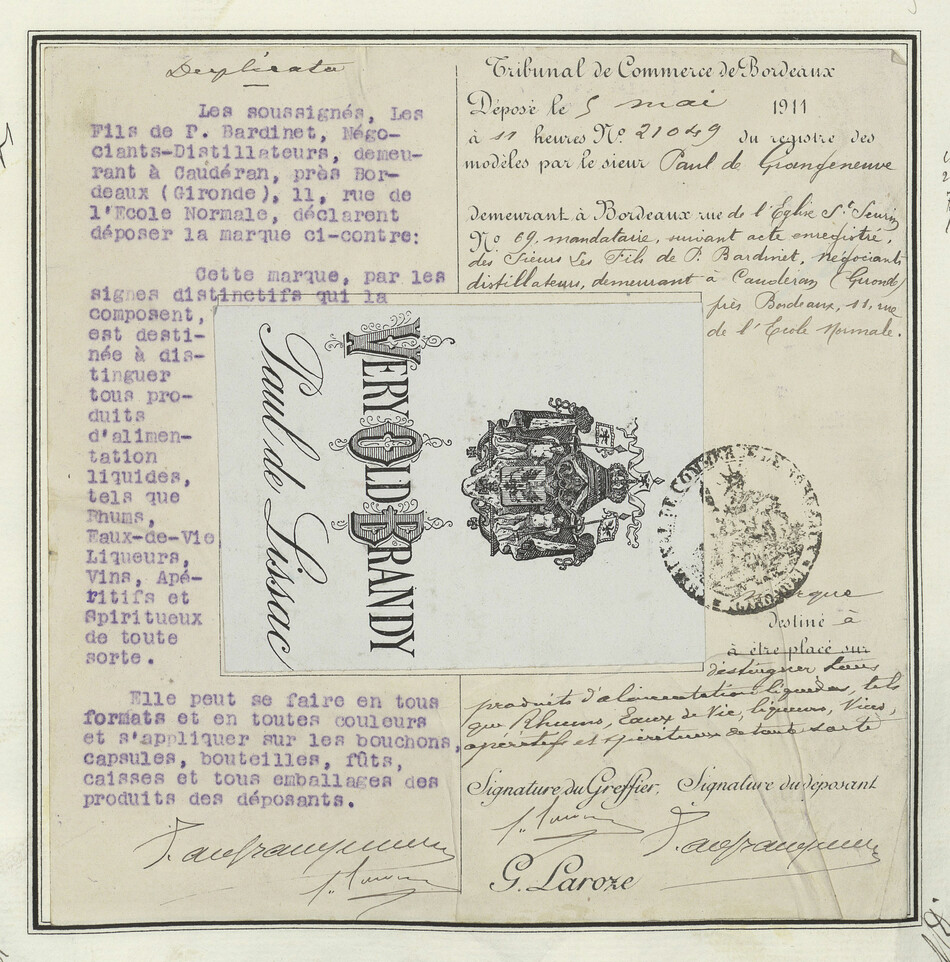 Duplicata
Les soussignés, Les
Fils de P. Bardinet, Négo-
ciants-Distillateurs, demeu-
rant à Caudéran, près Bor-
deaux (Gironde), 11, rue de
l'Ecole Normale, déclarent
déposer la marque ci-contre:
Cette marque, par les
signes distinctifs qui la
composent,
est desti-
née à dis-
tinguer
tous pro-
duits
d'alimen-
tation
liquides,
tels que
Rhums,
Eaux-de-Vie
Liqueurs,
Vins, Apé-
ritifs et
Spiritueux
de toute
sorte.
Elle peut se faire en tous
formats et en toutes couleurs
et s'appliquer sur les bouchons,
capsules, bouteilles, fûts,
caisses et tous emballages des
produits des déposants.
Tribunal de Commerce de Bordeaux
Déposé le 5 mai 1911
à 11 heures No. 21049 du registre des
modèles par le sieur Paul de Grangeneuve
demeurant à Bordeaux rue de l'Eglise St. Seurin
No. 69, mandataire, suivant acte enregistré,
des Sieurs Les Fils de P. Bardinet, négociants
distillateurs, demeurant à Caudéran (Gironde)
près Bordeaux, 11, rue
de l'Ecole Normale.
VERY OLD BRANDY
Paul de Lissac
TRIBUNAL DE COMMERCE DE BORDEAUX
marque
destiné à
à être placé sur
distinguer tous
produits d'alimentation liquides, tels
que Rhums, Eaux de Vie, liqueurs, Vins,
apéritifs et spiritueux de toute sorte
Signature du Greffier, Signature du déposant
G. Laroze